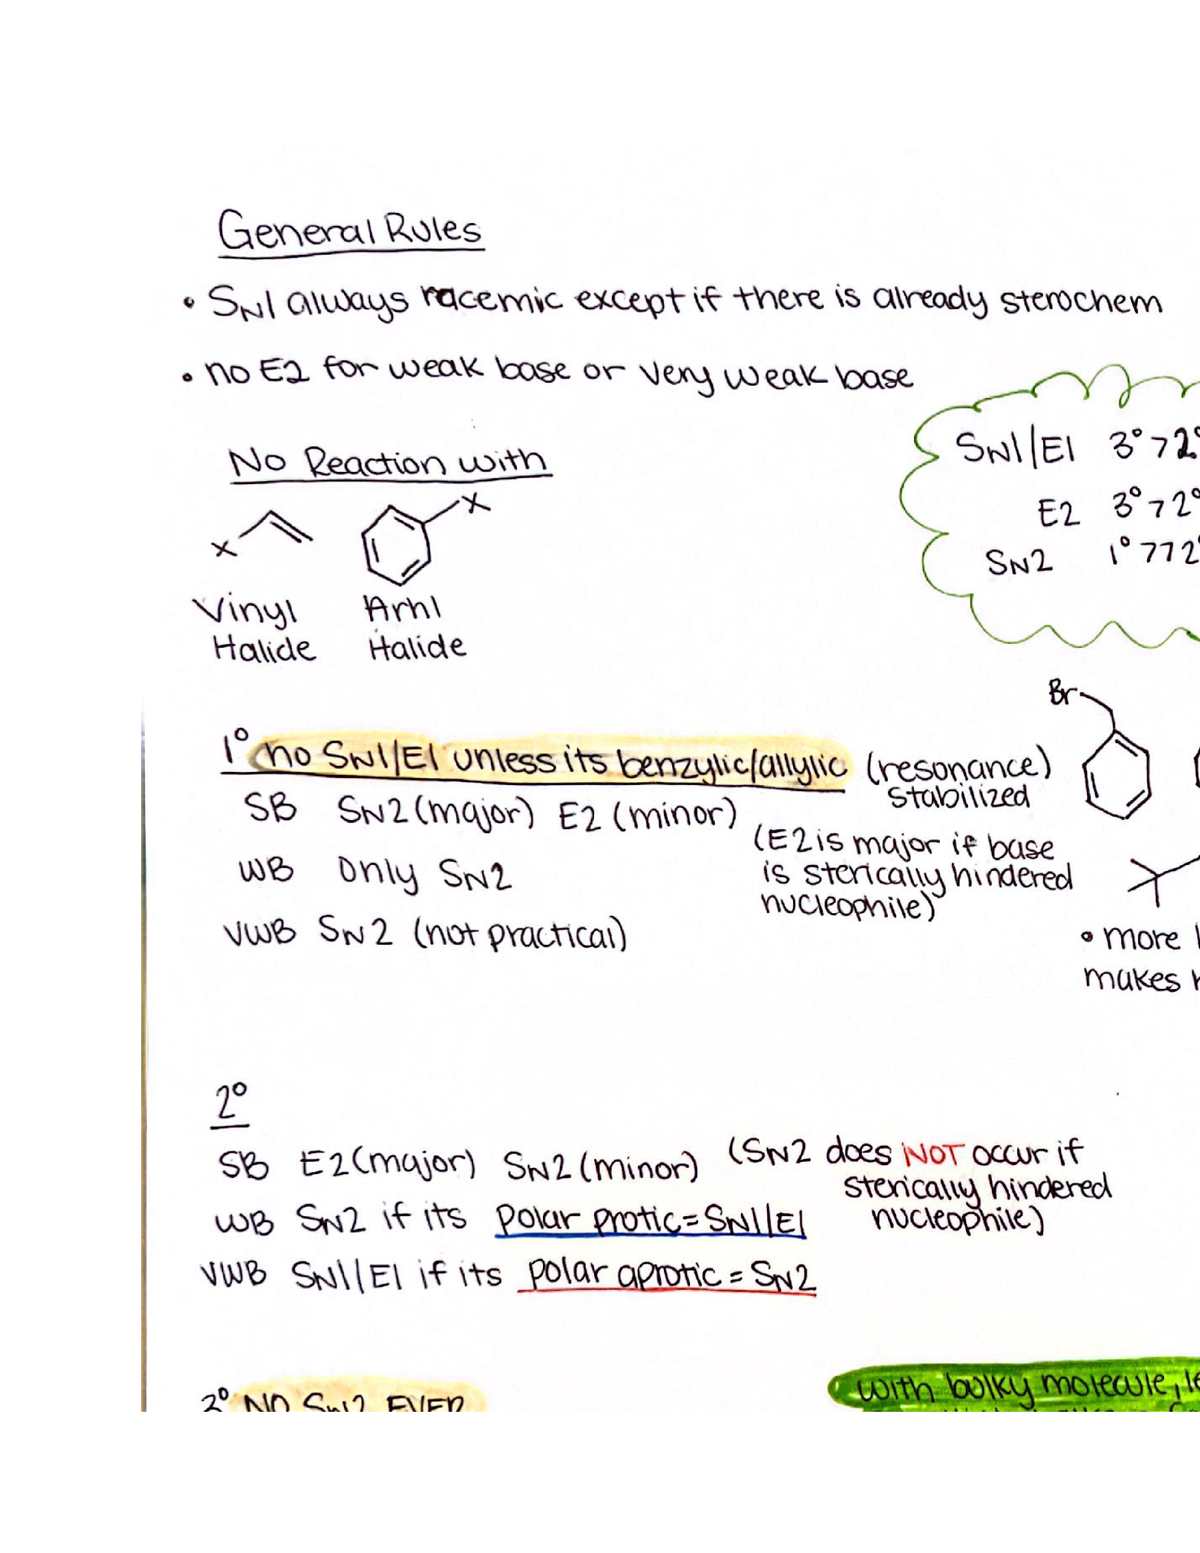 General Rules
• SN1 always racemic except if there is already sterochem
• no E2 for weak base or very weak base
SN1/E1 3° > 2°
E2 3° > 2°
SN2 1° >> 2°
No Reaction with
X
X
Vinyl Halide
Arhl Halide
Br
1° no SN1/E1 unless its benzylic/allylic (resonance) stabilized
SB SN2 (major) E2 (minor)
(E2 is major if base
is sterically hindered
nucleophile)
WB Only SN2
VWB SN2 (not practical)
• more
makes
2°
SB E2 (major) SN2 (minor) (SN2 does NOT occur if
sterically hindered
nucleophile)
WB SN2 if its polar protic = SN1/E1
VWB SN1/E1 if its polar aprotic = SN2
3° NO SN2 EVER
with bulky molecule,